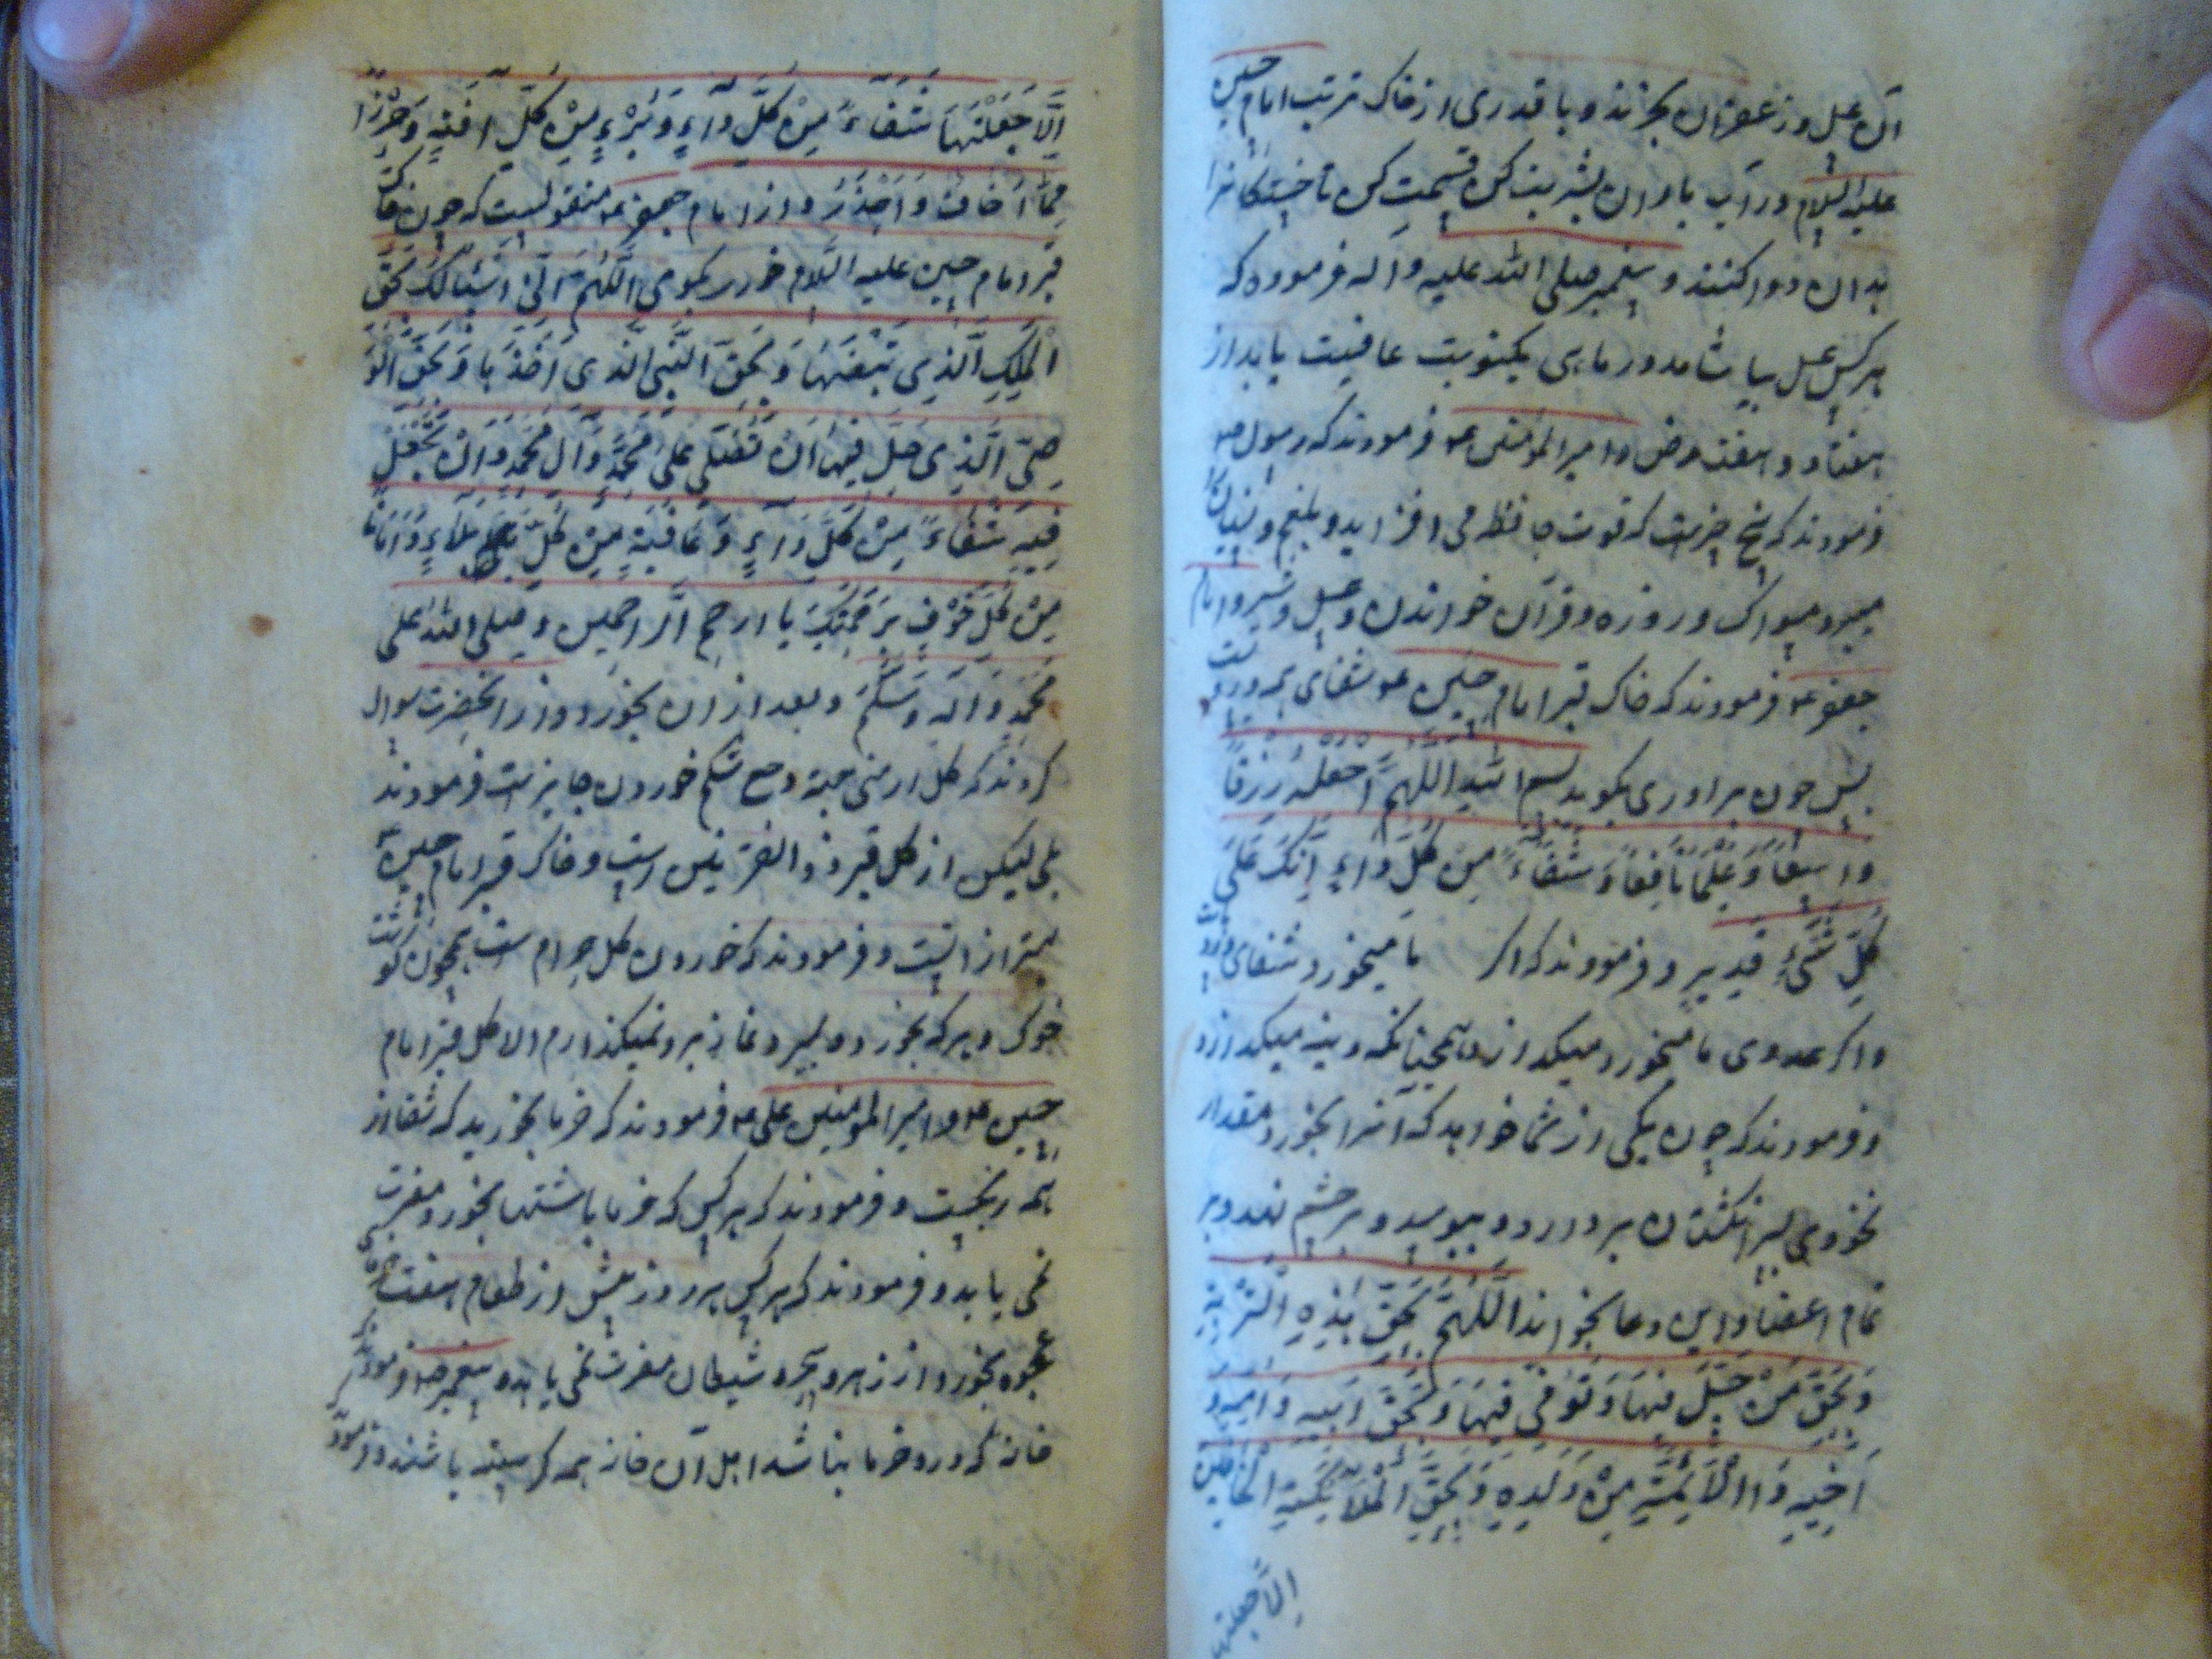 آن عسل و زعفران بخرند و با قدری از خاک تربت امام حسین
علیه السلام در آب باران بشربت کن قسمت کن تا خستکانرا
بدان دوا کنند و پیغمبر صلی الله علیه و آله فرموده که
هر کس عسل بیاشامد در ماهی یکنوبت عافیت یابد از
هفتاد و هفت مرض و امیرالمؤمنین ع فرمودند که رسول ص
فرمودند که پنج چیزست که قوت حافظه می افزاید و بلغم و نسیان
میبرد مسواک و روزه و قرآن خواندن و عسل و شیر و امام
جعفر ع فرمودند که خاک قبر امام حسین ع شفای هر دردیست
پس چون برداری بگوید بسم الله اللهم اجعله رزقا
واسعا و علما نافعا و شفاء من کل داء انک علی
کل شیء قدیر و فرمودند که اگر ما میخورد شفای
و اگر عدوی ما میخورد میکدازد همچنانکه دنبه میکدازد
و فرمودند که چون یکی از شما خواهد که آنرا بخورد مقدار
نخودی بسر انکشتان بردارد و ببوسد و بر چشم نهد و بر
تمام اعضا و این دعا بخواند اللهم بحق هذه التربة
و بحق من حل فیها و توفی فیها و بحق ابیه و امه و
اخیه و الائمة من ولده و بحق الملائکة الحافین
الا جعلتها
الا جعلتها شفاء من کل داء و برء من کل افة و حرزا
مما اخاف و احذر و از امام جعفر ع منقولست که چون خاک
قبر امام حسین علیه السلام خورد بگوی اللهم انی اسئالک بحق
الملک الذی قبضها و بحق النبی الذی اخذها و بحق الو
صی الذی حل فیها ان تصلی علی محمد و آل محمد و ان تجعل
فیه شفاء من کل داء و عافیة من کل بلاء و امانا
من کل خوف برحمتک یا ارحم الراحمین و صلی الله علی
محمد و آله و سلم و بعد از آن بخورد و از آنحضرت سوال
کردند که کل ارمنی جهة وجع شکم خوردن جایزست فرمودند
بلی لیکن از کل قبر ذوالقرنین است و خاک قبر امام حسین ع
بهتر از انست و فرمودند که خوردن کل حرام است همچون کوشت
خوک و هر که بخورد و بمیرد نماز برو نمیکذارم الا کل قبر امام
حسین ع و امیرالمومنین علی ع فرمودند که خرما بخورید که شفا از
همه رنجست و فرمودند که هر کس که خرما باشتها بخورد مضرت
نمی یابد و فرمودند که هر کس هر روز پیش از طعام هفت
عجوه بخورد از زهر و سحر و شیطان مضرت نمی یابد و پیغمبر ص فرمودند
خانه که درو خرما نباشد اهل آن خانه همه کرسنه باشند و فرمود